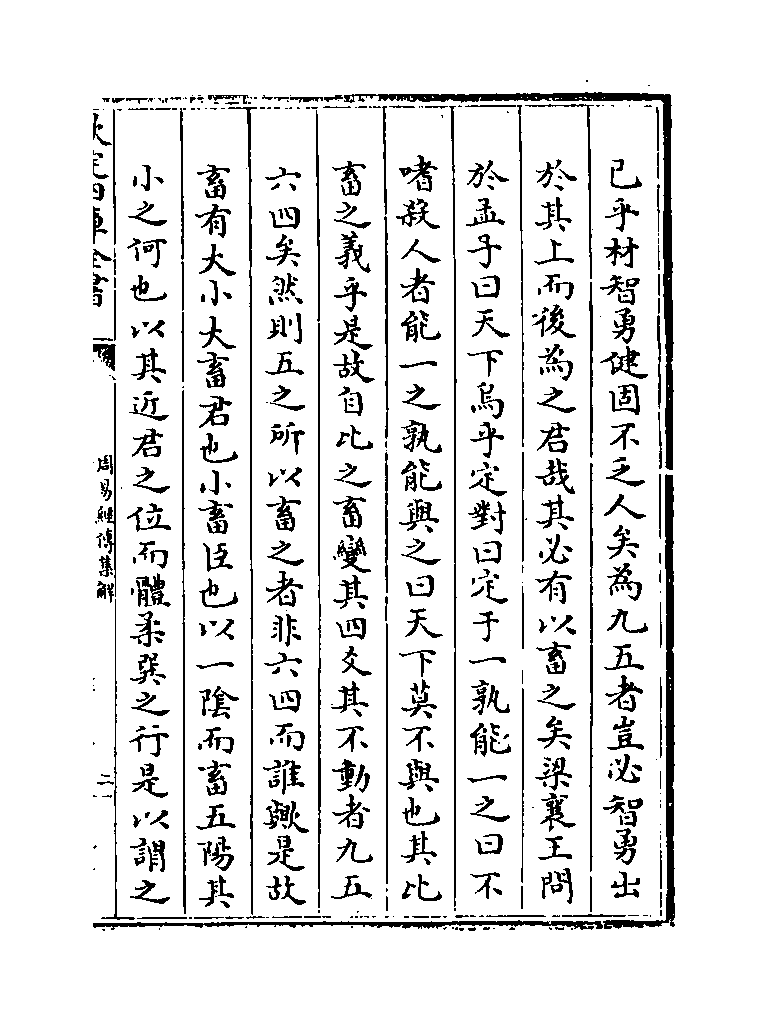 已乎材智勇健固不乏人矣為九五者豈必智勇出
於其上而後為之君哉其必有以畜之矣梁襄王問
於孟子曰天下烏乎定對曰定于一孰能一之曰不
嗜殺人者能一之孰能與之曰天下莫不與也其比
畜之義乎是故自比之畜變其四爻其不動者九五
六四矣然則五之所以畜之者非六四而誰歟是故
畜有大小大畜君也小畜臣也以一陰而畜五陽其
小之何也以其近君之位而體柔巽之行是以謂之
欽定四庫全書
周易經傳集解